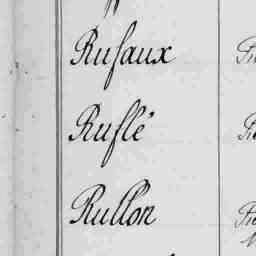 Rufaux
Ruflé
Rullon